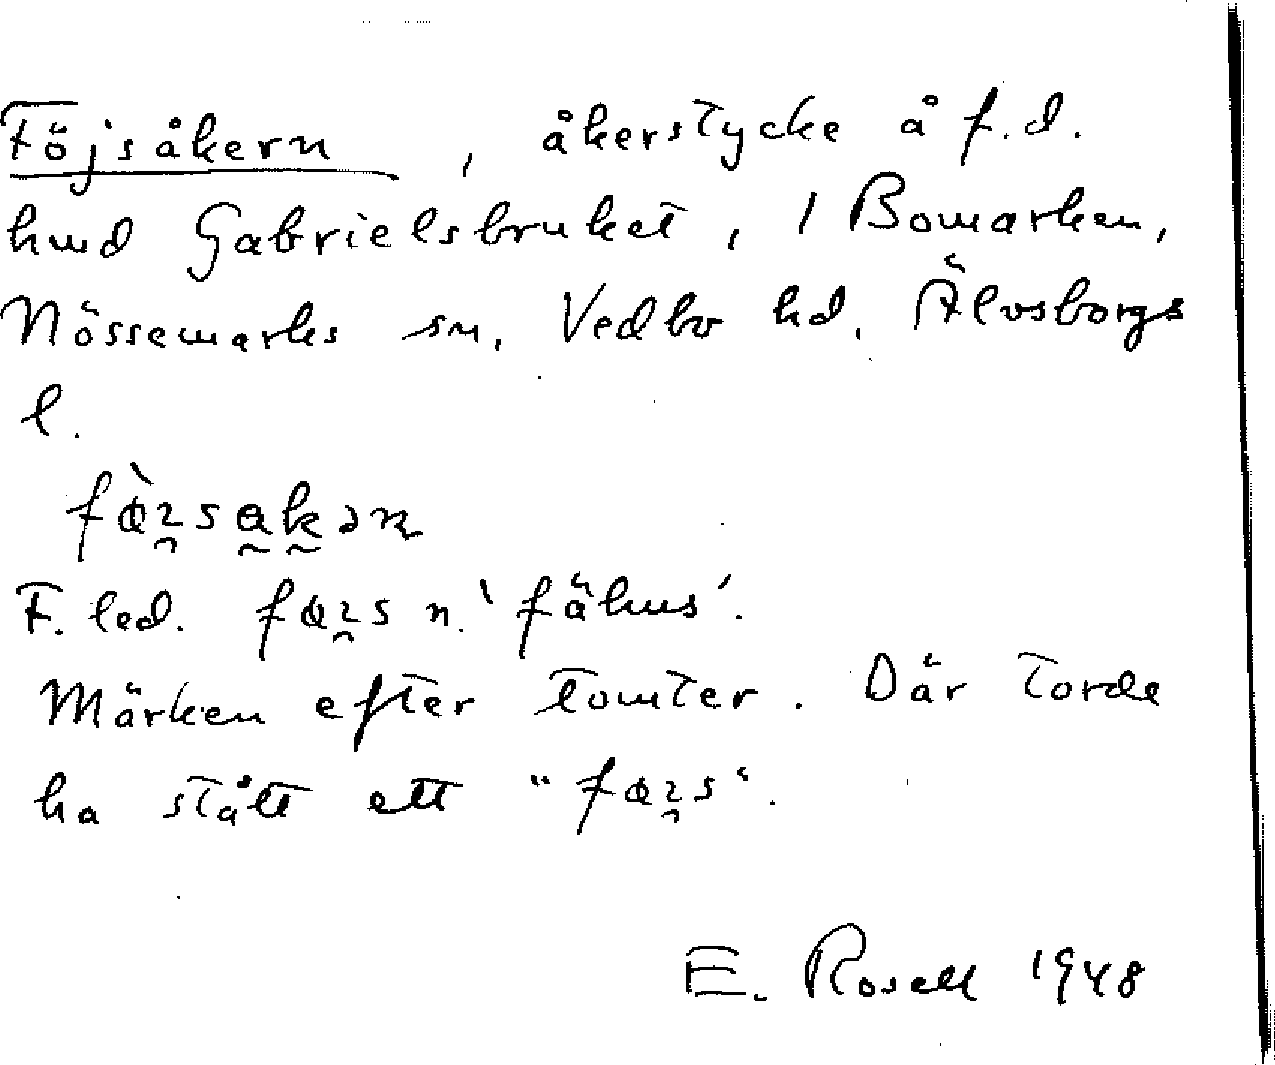 Föjsåkern, åkerstycke å f.d.
hmd Gabrielsbruket, i Bomarken,
Nössemarks sn, Vedbo hd, Älvsborgs
l.
F. led. n. 'fähus'.
Märken efter tomter. Där torde
ha stått ett
E. Rosell 1948